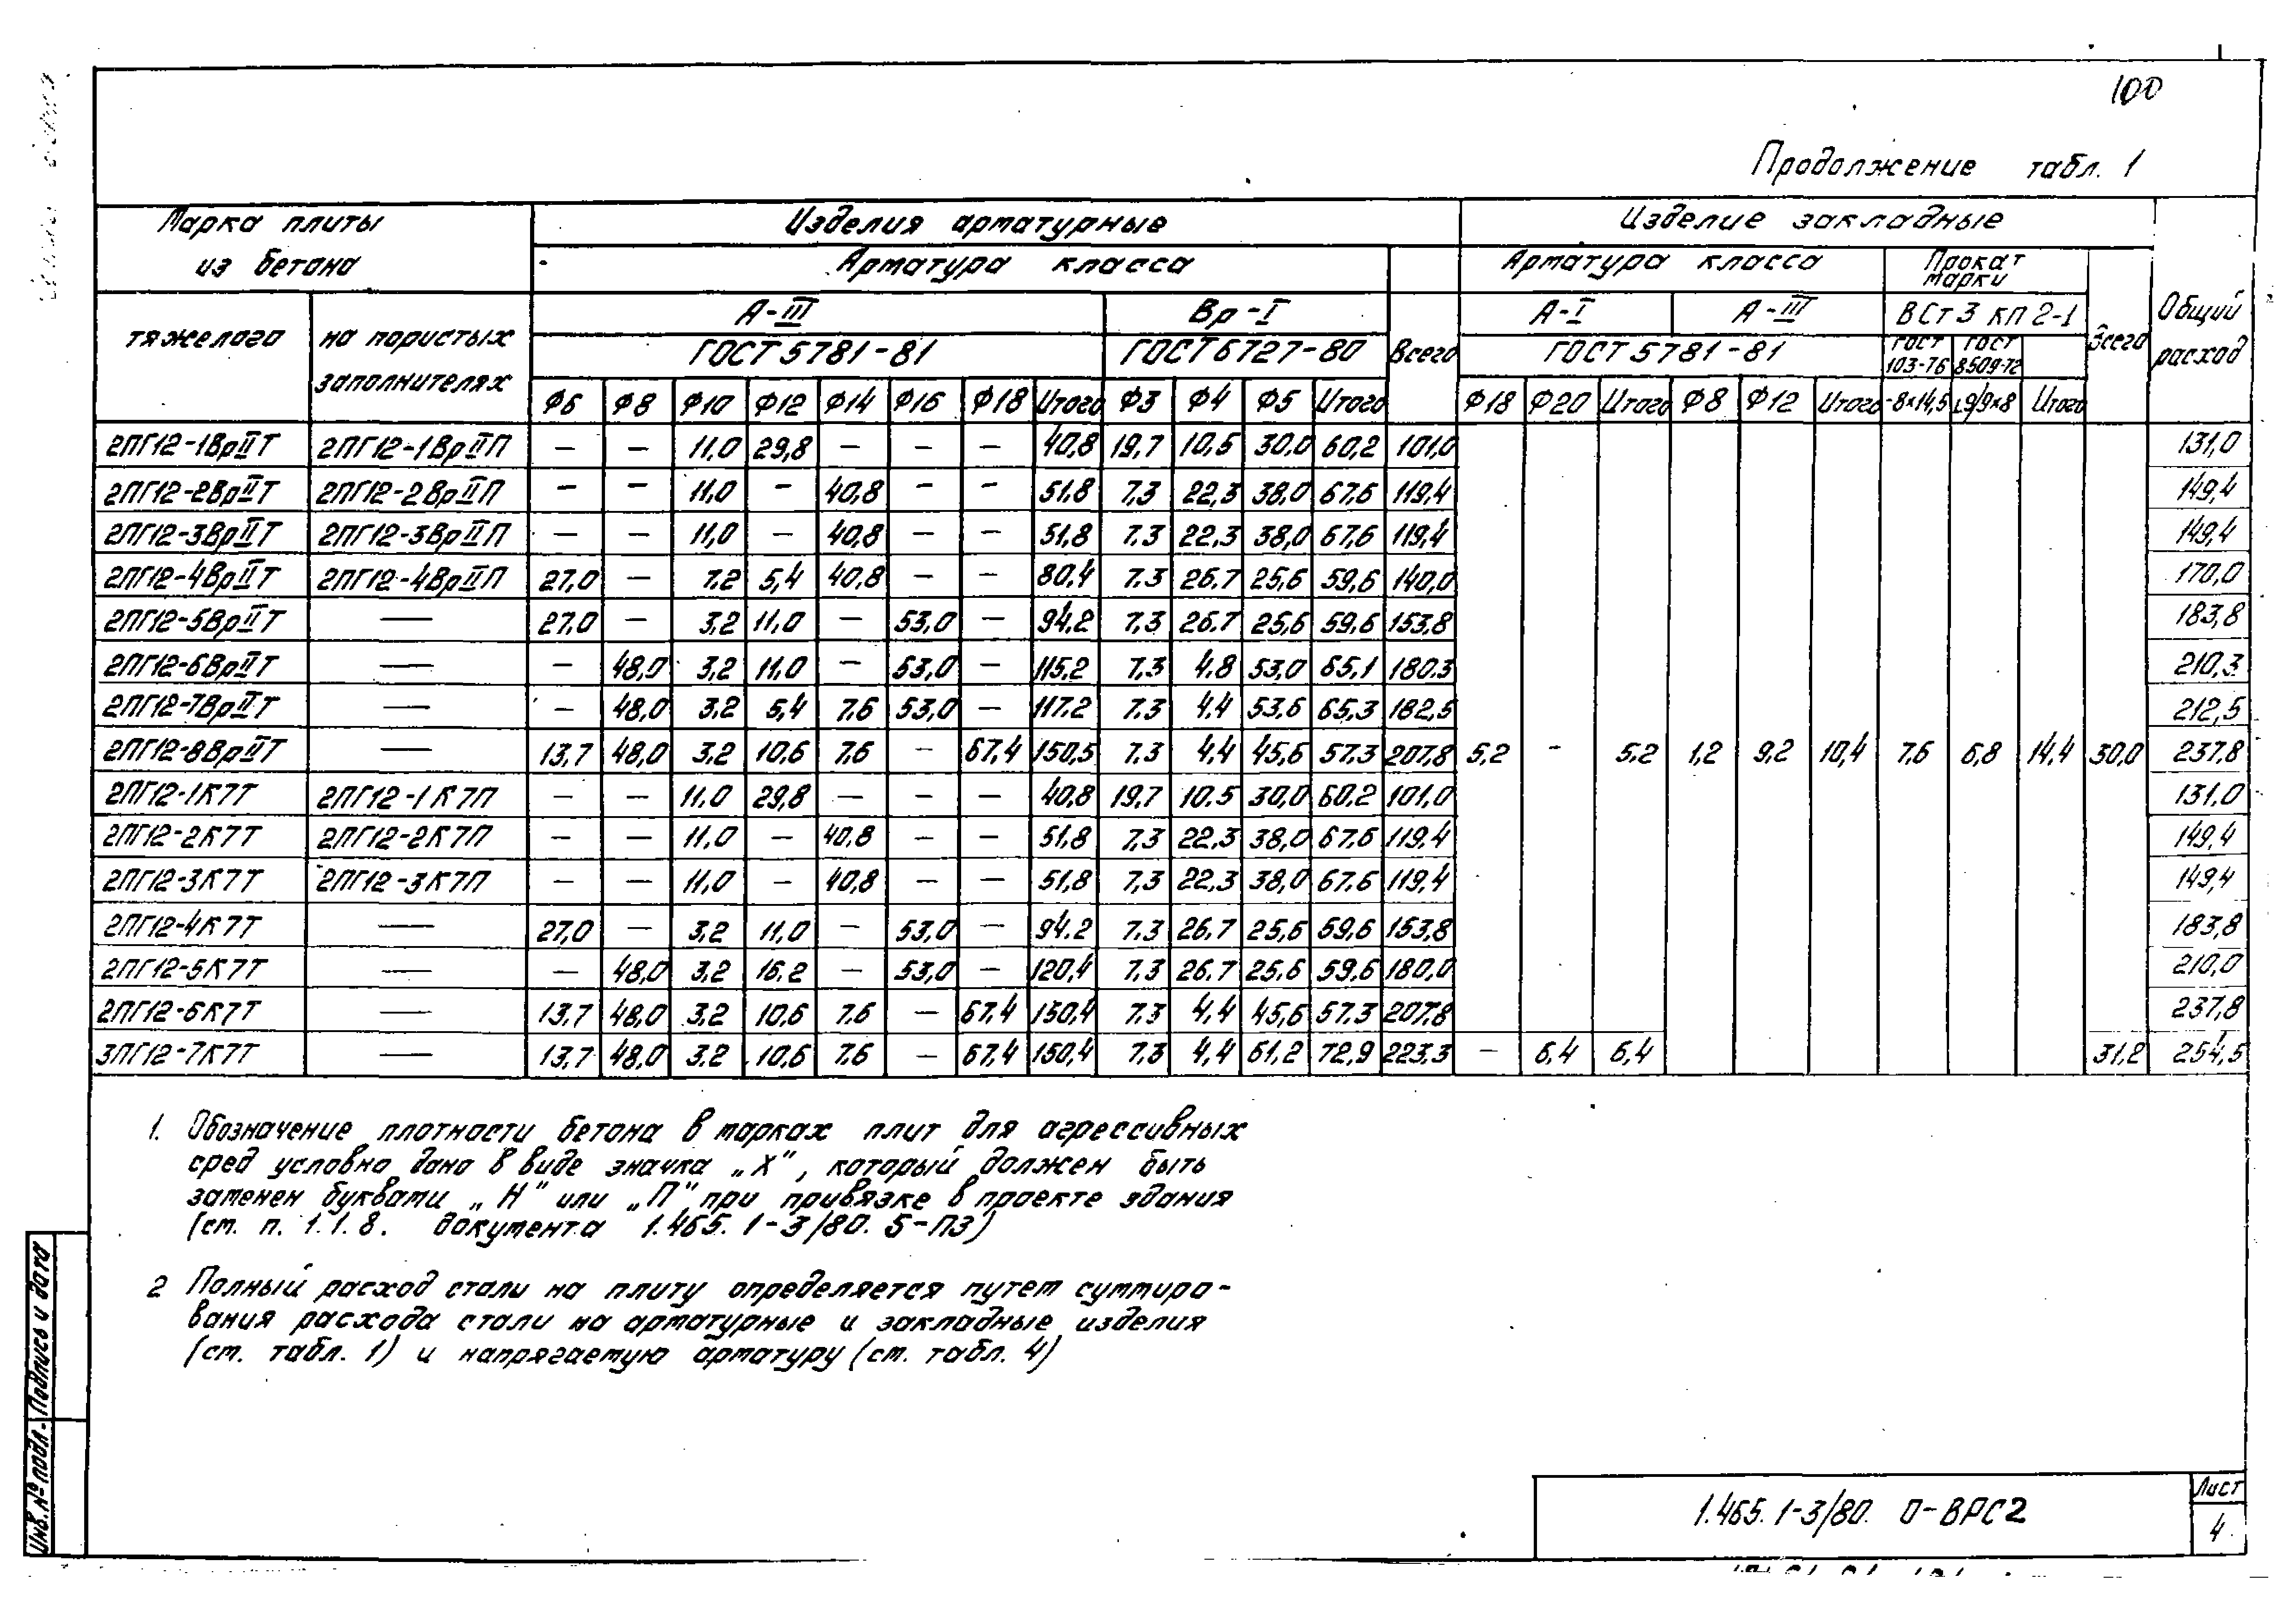 100
Продолжение табл. 1
Марка плиты из бетона | Изделия арматурные | Изделие закладные | Общий расход
Арматура класса | Всего | Арматура класса | Прокат марки | Всего
тяжелого | на пористых заполнителях | А-III | Вр-I | А-I | А-III | ВСт3 кп 2-1
ГОСТ 5781-81 | ГОСТ 6727-80 | ГОСТ 5781-81 | ГОСТ 103-76 | ГОСТ 8509-72
Ф6 | Ф8 | Ф10 | Ф12 | Ф14 | Ф16 | Ф18 | Итого | Ф3 | Ф4 | Ф5 | Итого | Ф18 | Ф20 | Итого | Ф8 | Ф12 | Итого | -8×14,5 | L9/9×8 | Итого
2ПГ12-1ВрIIТ | 2ПГ12-1ВрIIП | — | — | 11,0 | 29,8 | — | — | — | 40,8 | 19,7 | 10,5 | 30,0 | 60,2 | 101,0 | 131,0
2ПГ12-2ВрIIТ | 2ПГ12-2ВрIIП | — | — | 11,0 | — | 40,8 | — | — | 51,8 | 7,3 | 22,3 | 38,0 | 67,6 | 119,4 | 149,4
2ПГ12-3ВрIIТ | 2ПГ12-3ВрIIП | — | — | 11,0 | — | 40,8 | — | — | 51,8 | 7,3 | 22,3 | 38,0 | 67,6 | 119,4 | 149,4
2ПГ12-4ВрIIТ | 2ПГ12-4ВрIIП | 27,0 | — | 7,2 | 5,4 | 40,8 | — | — | 80,4 | 7,3 | 26,7 | 25,6 | 59,6 | 140,0 | 170,0
2ПГ12-5ВрIIТ | — | 27,0 | — | 3,2 | 11,0 | — | 53,0 | — | 94,2 | 7,3 | 26,7 | 25,6 | 59,6 | 153,8 | 183,8
2ПГ12-6ВрIIТ | — | — | 48,0 | 3,2 | 11,0 | — | 53,0 | — | 115,2 | 7,3 | 4,8 | 53,0 | 65,1 | 180,3 | 210,3
2ПГ12-7ВрIIТ | — | — | 48,0 | 3,2 | 5,4 | 7,6 | 53,0 | — | 117,2 | 7,3 | 4,4 | 53,6 | 65,3 | 182,5 | 212,5
2ПГ12-8ВрIIТ | — | 13,7 | 48,0 | 3,2 | 10,6 | 7,6 | — | 67,4 | 150,5 | 7,3 | 4,4 | 45,6 | 57,3 | 207,8 | 5,2 | — | 5,2 | 1,2 | 9,2 | 10,4 | 7,6 | 6,8 | 14,4 | 30,0 | 237,8
2ПГ12-1К7Т | 2ПГ12-1К7П | — | — | 11,0 | 29,8 | — | — | — | 40,8 | 19,7 | 10,5 | 30,0 | 60,2 | 101,0 | 131,0
2ПГ12-2К7Т | 2ПГ12-2К7П | — | — | 11,0 | — | 40,8 | — | — | 51,8 | 7,3 | 22,3 | 38,0 | 67,6 | 119,4 | 149,4
2ПГ12-3К7Т | 2ПГ12-3К7П | — | — | 11,0 | — | 40,8 | — | — | 51,8 | 7,3 | 22,3 | 38,0 | 67,6 | 119,4 | 149,4
2ПГ12-4К7Т | — | 27,0 | — | 3,2 | 11,0 | — | 53,0 | — | 94,2 | 7,3 | 26,7 | 25,6 | 59,6 | 153,8 | 183,8
2ПГ12-5К7Т | — | — | 48,0 | 3,2 | 16,2 | — | 53,0 | — | 120,4 | 7,3 | 26,7 | 25,6 | 59,6 | 180,0 | 210,0
2ПГ12-6К7Т | — | 13,7 | 48,0 | 3,2 | 10,6 | 7,6 | — | 67,4 | 150,4 | 7,3 | 4,4 | 45,6 | 57,3 | 207,8 | 237,8
3ПГ12-7К7Т | — | 13,7 | 48,0 | 3,2 | 10,6 | 7,6 | — | 67,4 | 150,4 | 7,3 | 4,4 | 61,2 | 72,9 | 223,3 | — | 6,4 | 6,4 | 31,2 | 254,5
1. Обозначение плотности бетона в марках плит для агрессивных
сред условно дано в виде значка „Х", который должен быть
заменен буквами „Н" или „П" при привязке в проекте здания
(см. п. 1.1.8. документа 1.465.1-3/80.5-ПЗ)
2 Полный расход стали на плиту определяется путем суммиро-
вания расхода стали на арматурные и закладные изделия
(см. табл. 1) и напрягаемую арматуру (см. табл. 4)
Инв. № подл. Подпись и дата
1.465.1-3/80. 0-ВРС2
Лист
4